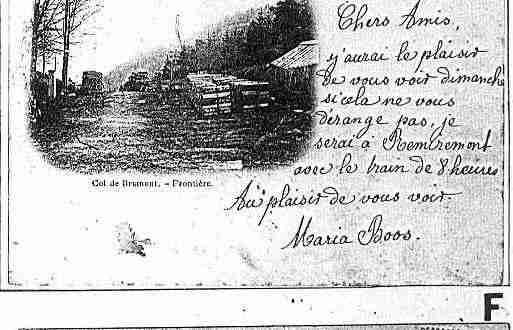 Chers Amis,
j'aurai le plaisir
de vous voir dimanche
si cela ne vous
dérange pas, je
serai à Remiremont
avec le train de 8 heures
Au plaisir de vous voir.
Maria Boos.
Col de Bramont. - Frontière.
F